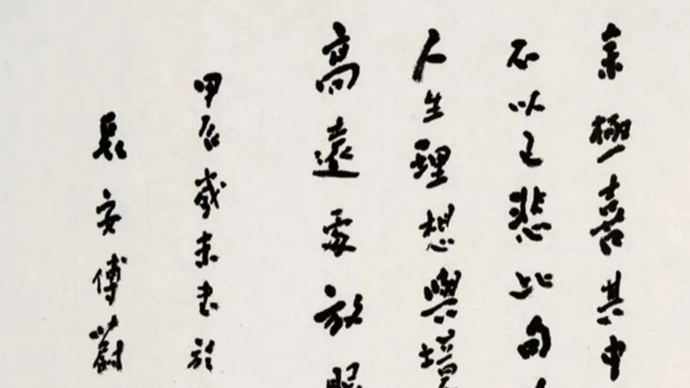 余極喜其中
不以己悲此句
人生理想與境
高遠處放眼
甲辰歲末書於
長安傅蔚